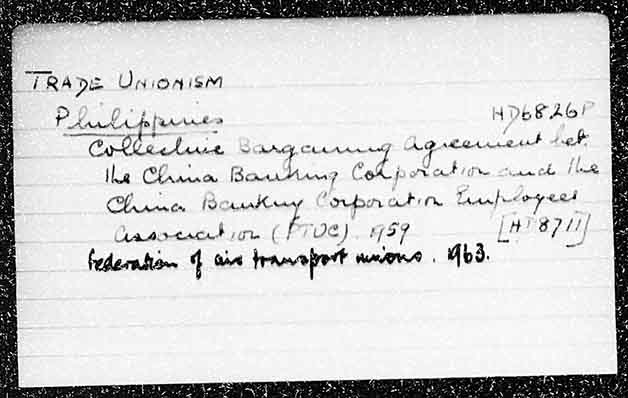 TRADE UNIONISM
Philippines HD6826P
Collective Bargaining Agreement bet.
the China Banking Corporation and the
China Banking Corporation Employees
Association (PTUC). 1959 [HT8711]
Federation of air transport unions. 1963.